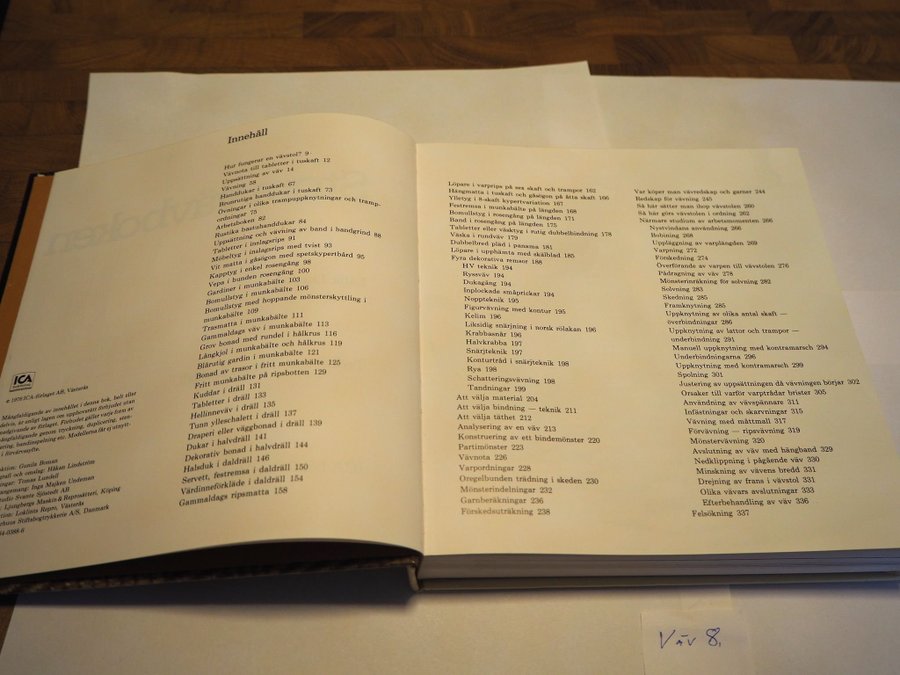 Innehåll
Hur fungerar en vävstol? 9
Vävnota till tabletter i tuskaft 12
Uppsättning av väv 14
Vävning 58
Handdukar i tuskaft 67
Brunrutiga handdukar i tuskaft 73
Övningar i olika trampuppknytningar och tramp-
ordningar 75
Arbetsboken 82
Rustika bastuhanddukar 84
Uppsättning och vävning av band i bandgrind 88
Tabletter i inslagsrips 91
Möbeltyg i inslagsrips med tvist 93
Vit matta i gåsögon med spetskypertbård 95
Kapptyg i enkel rosengång 98
Vepa i bunden rosengång 100
Gardiner i munkabälte 103
Bomullstyg i munkabälte 106
Bomullstyg med hoppande mönsterskyttling i
munkabälte 109
Trasmatta i munkabälte 111
Gammaldags väv i munkabälte 113
Grov bonad med rundel i hålkrus 116
Långkjol i munkabälte och hålkrus 119
Blårutig gardin i munkabälte 121
Bonad av trasor i fritt munkabälte 125
Fritt munkabälte på ripsbotten 129
Kuddar i dräll 131
Tabletter i dräll 133
Hellinneväv i dräll 135
Tunn ylleschalett i dräll 137
Draperi eller väggbonad i dräll 139
Dukar i halvdräll 141
Dekorativ bonad i halvdräll 144
Halsduk i daldräll 146
Servett, festremsa i daldräll 150
Värdinneförkläde i daldräll 154
Gammaldags ripsmatta 158
ICA
© 1978 ICA-förlaget AB, Västerås
Mångfaldigande av innehållet i denna bok, helt eller
delvis, är enligt lagen om upphovsrätt förbjudet utan
medgivande av förlaget. Förbudet gäller varje form av
mångfaldigande genom tryckning, duplicering, sten-
cilering, bandinspelning etc. Modellerna får ej utnytt-
i förvärvssyfte.
Gunila Boman
omslag: Håkan Lindström
Tomas Lundell
Inga Majken Undeman
Studio Svante Sjöstedt AB
Ljungbergs Maskin & Reprosätteri, Köping
Loklista Repro, Västerås
Stiftsbogtrykkerie A/S, Danmark
0388-6
Löpare i varprips på sex skaft och trampor 162
Hängmatta i tuskaft och gåsögon på åtta skaft 166
Ylletyg i 8-skaft kypertvariation 167
Festremsa i munkabälte på längden 168
Bomullstyg i rosengång på längden 171
Band i rosengång på längden 175
Tabletter eller väsktyg i rutig dubbelbindning 178
Väska i rundväv 179
Dubbelbred pläd i panama 185
Löpare i upphämta med skälblad 185
Fyra dekorativa remsor 188
HV teknik 194
Ryssväv 194
Dukagång 194
Inplockade småprickar 194
Noppteknik 195
Figurvävning med kontur 195
Kelim 196
Liksidig snärjning i norsk rölakan 196
Krabbasnår 196
Halvkrabba 197
Snärjteknik 197
Konturtråd i snärjteknik 198
Rya 198
Schatteringsvävning 198
Tandningar 199
Att välja material 204
Att välja bindning — teknik 211
Att välja täthet 212
Analysering av en väv 213
Konstruering av ett bindemönster 220
Partimönster 223
Vävnota 226
Varpordningar 228
Oregelbunden trädning i skeden 230
Mönsterindelningar 232
Garnberäkningar 236
Förskedsuträkning 238
Var köper man vävredskap och garner 244
Redskap för vävning 245
Så här sätter man ihop vävstolen 260
Så här görs vävstolen i ordning 262
Närmare studium av arbetsmomenten 266
Nystvindans användning 266
Bobining 268
Uppläggning av varplängden 269
Varpning 272
Förskedning 274
Överförande av varpen till vävstolen 276
Pådragning av väv 278
Mönsterinräkning för solvning 282
Solvning 283
Skedning 285
Framknytning 285
Uppknytning av olika antal skaft —
överbindningar 286
Uppknytning av lattor och trampor —
underbindning 291
Manuell uppknytning med kontramarsch 294
Underbindningarna 296
Uppknytning med kontramarsch 299
Spolning 301
Justering av uppsättningen då vävningen börjar 302
Orsaker till varför varptrådar brister 305
Användning av vävspännare 311
Infästningar och skarvningar 315
Vävning med måttmall 317
Förvävning — ripsvävning 319
Mönstervävning 320
Avslutning av väv med hängband 329
Nedklippning i pågående väv 330
Minskning av vävens bredd 331
Drejning av frans i vävstol 331
Olika vävars avslutningar 333
Efterbehandling av väv 336
Felsökning 337
Väv 8.